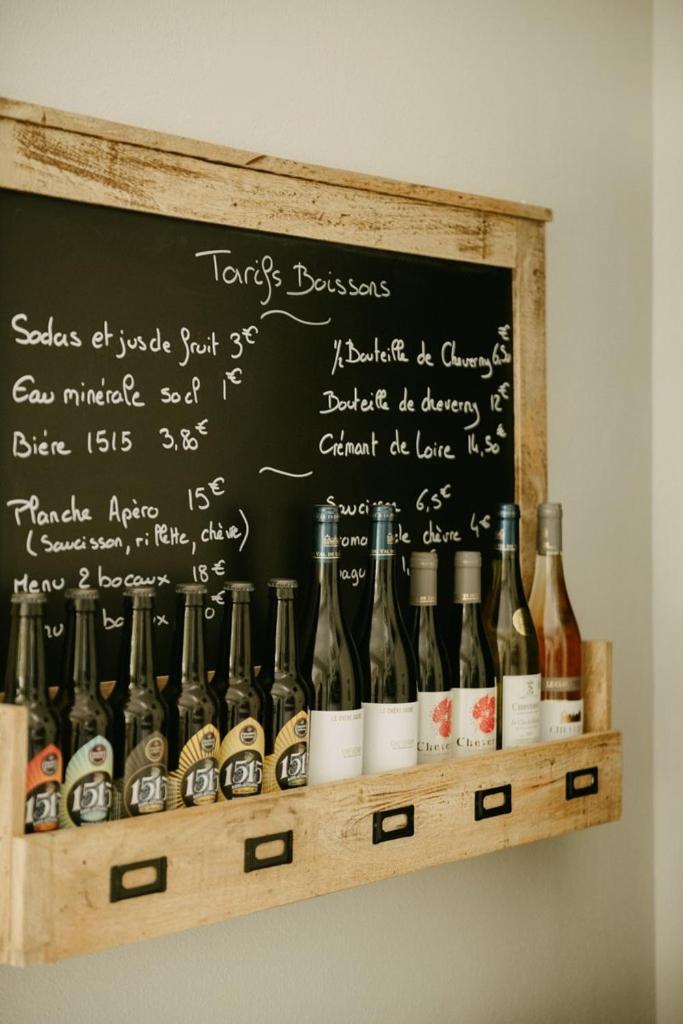 Tarifs Boissons
Sodas et jus de fruit 3€
Eau minérale 50cl 1€
Bière 1515 3,80€
½ Bouteille de Cheverny 6,50€
Bouteille de cheverny 12€
Crémant de Loire 14,50€
Planche Apéro 15€
(Saucisson, rillette, chèvre)
Menu 2 bocaux 18€
6,5€
chèvre 4€
1515
1515
1515
1515
1515
1515